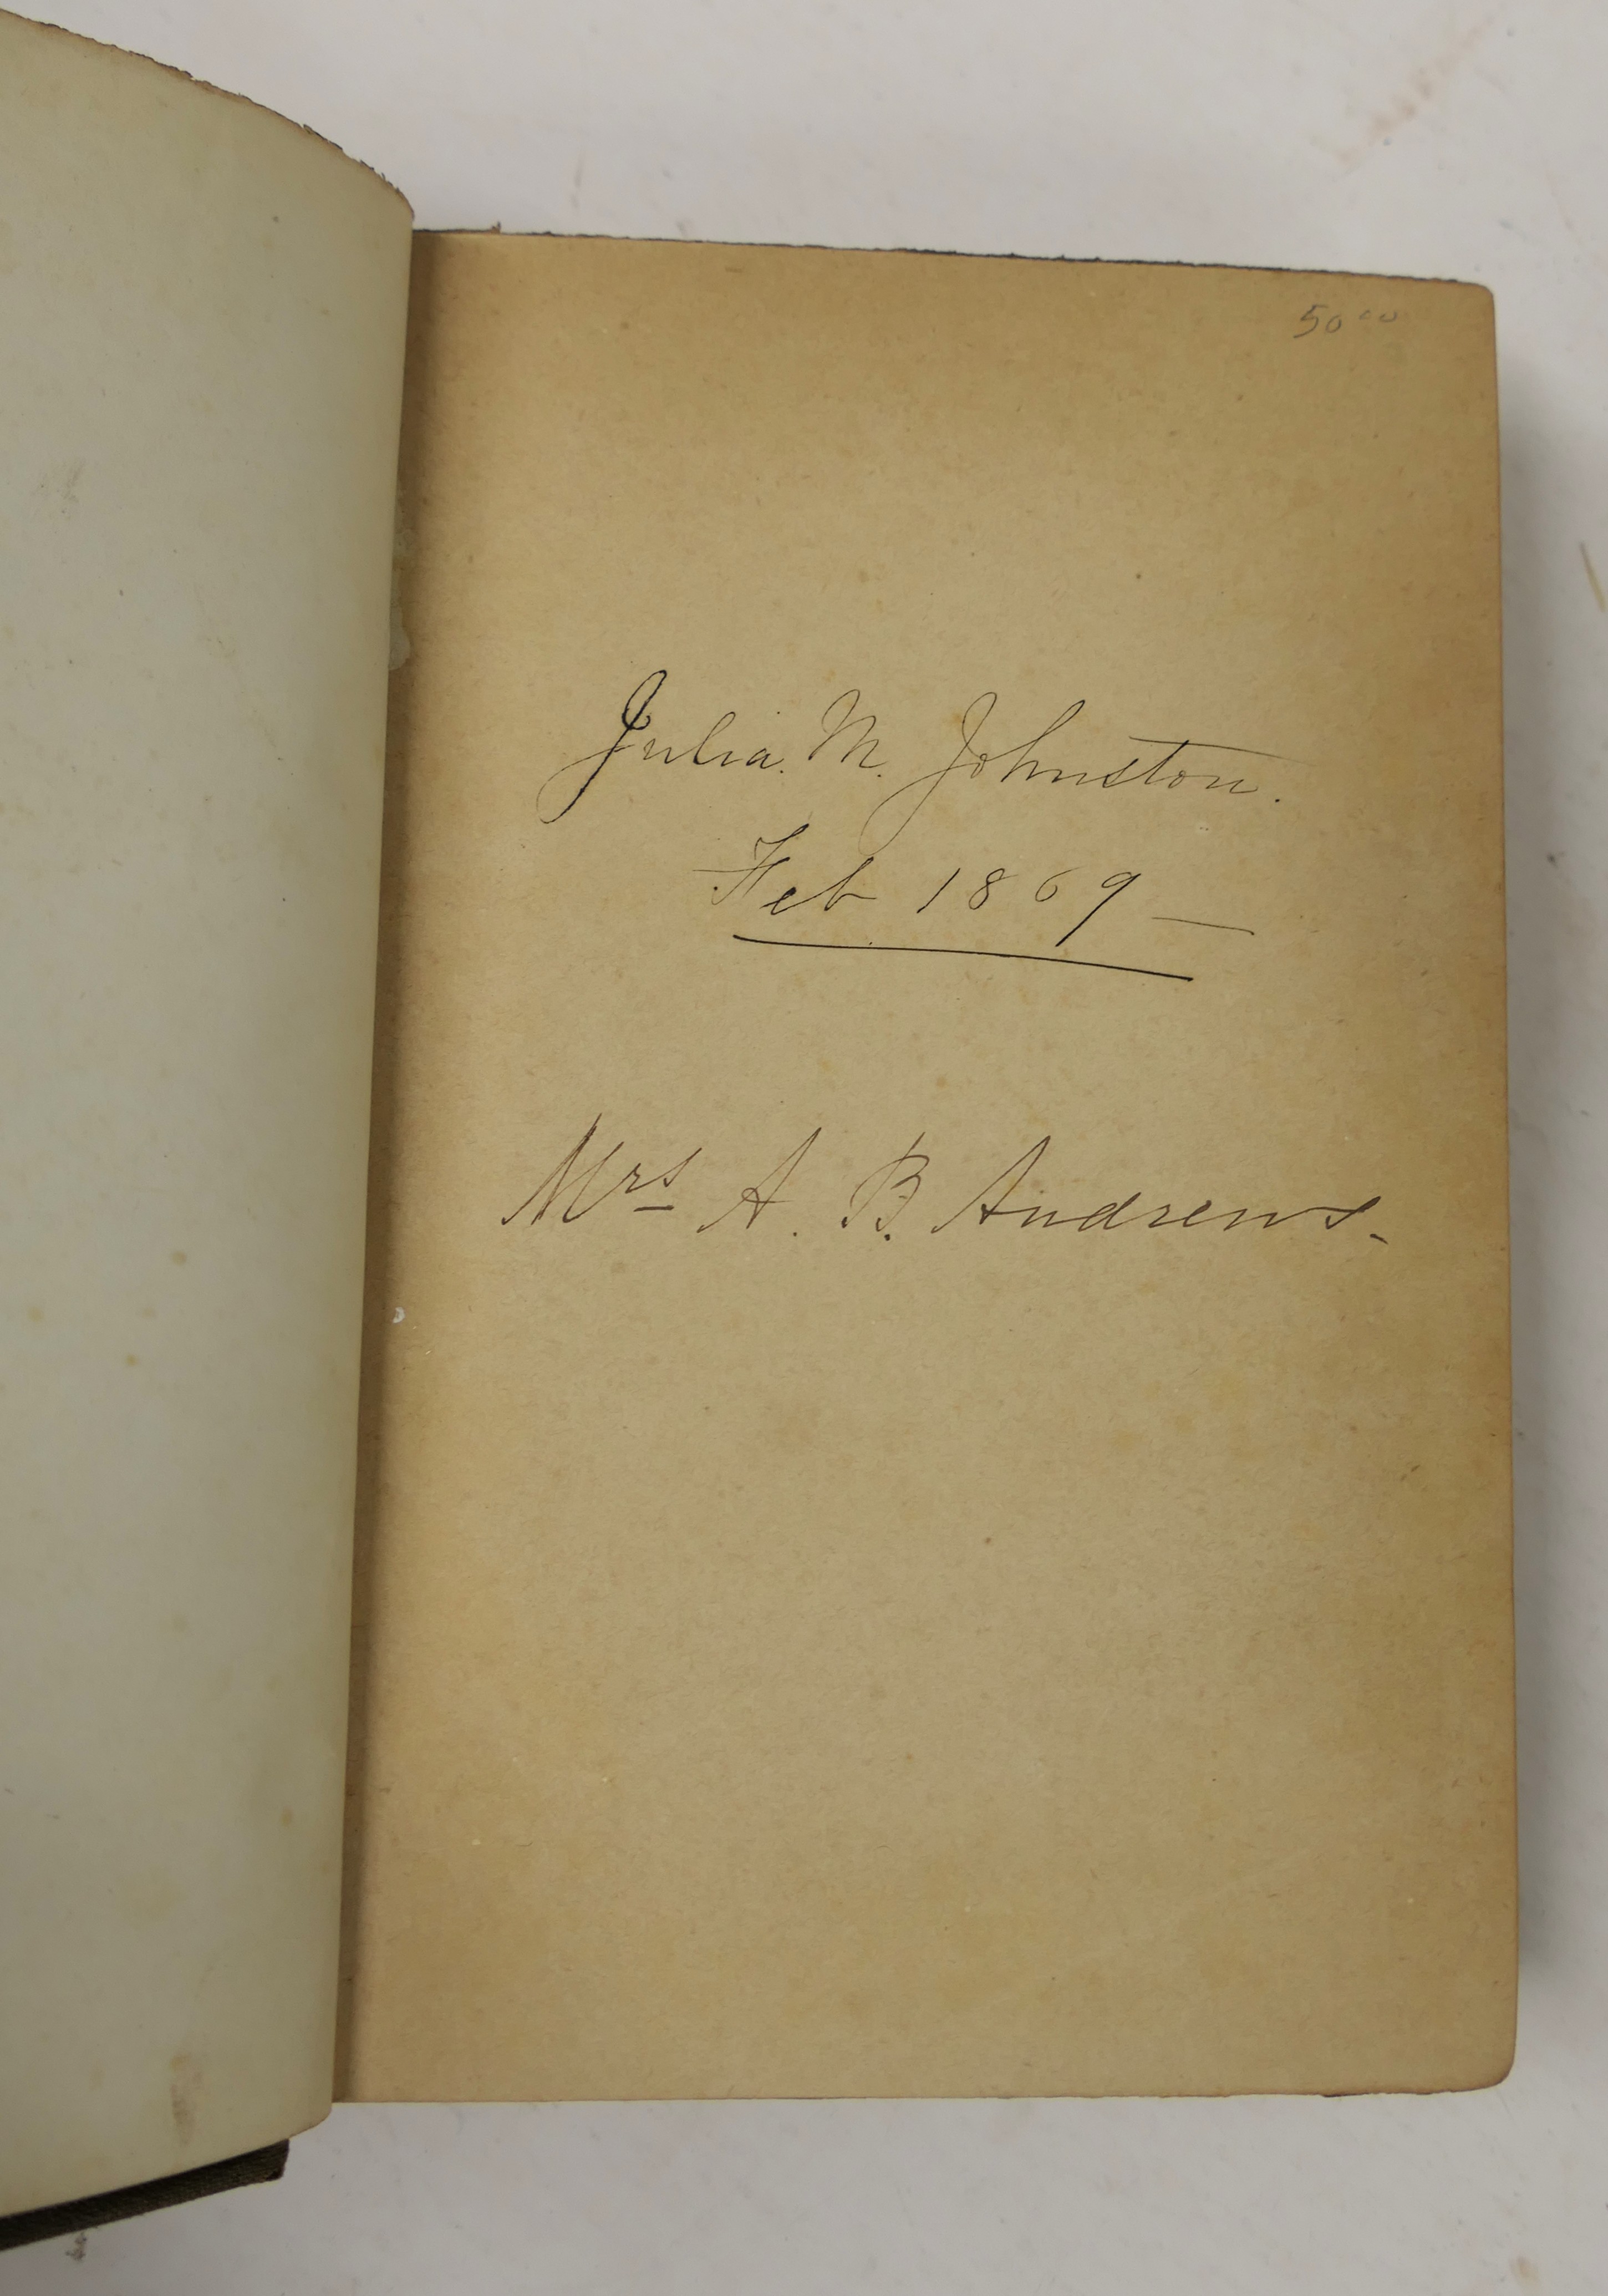 50 00
Julia. M. Johnston.
Feb 1869 —
Mrs A. B. Andrews.